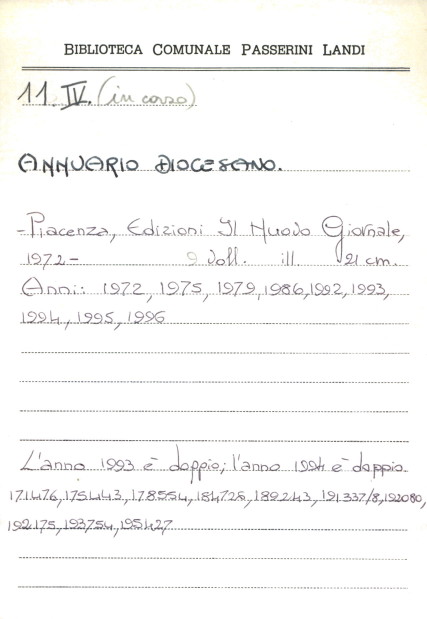 BIBLIOTECA COMUNALE PASSERINI LANDI
11. IV. (in corso)
ANNUARIO DIOCESANO.
- Piacenza, Edizioni Il Nuovo Giornale,
1972- 9 voll. ill. 21 cm.
Anni: 1972, 1975, 1979, 1986, 1992, 1993,
1994, 1995, 1996
L'anno 1993 è doppio; l'anno 1994 è doppio.
171476, 175443, 178554, 184725, 189243, 191337/8, 192080,
192175, 193754, 195427